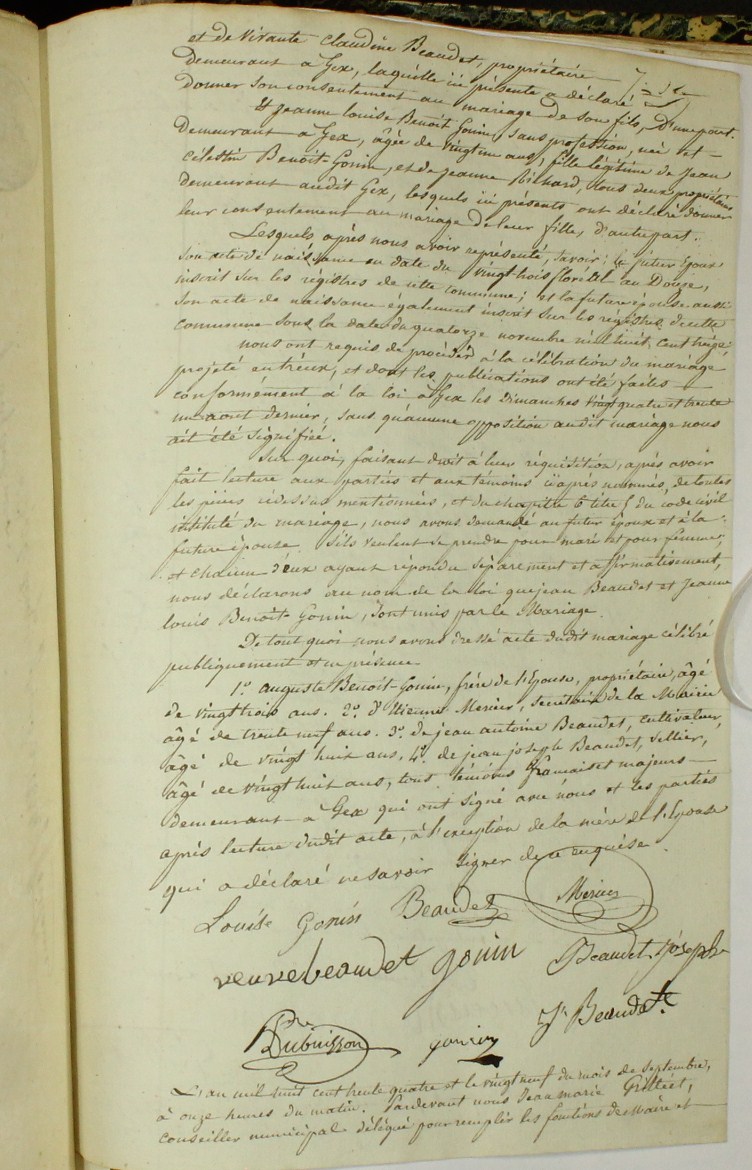 et de vivante Claudine Beaudet, propriétaire
demeurant à Gex, laquelle ici présente a déclaré
donner son consentement au mariage de son fils, D'une part.
Et Jeanne Louise Benoit Gonin, sans profession, née et
demeurant à Gex, âgée de vingt un ans, fille légitime de Jean
Célestin Benoit-Gonin, et de Jeanne Richard, tous deux propriétaires
demeurant audit Gex, lesquels ici présents ont déclaré donner
leur consentement au mariage de leur fille, d'autre part.
Lesquels après nous avoir représenté, savoir: le futur Epoux
son acte de naissance en date du vingt trois floréal an Douze,
inscrit sur les régistres de cette commune; et la future épouse aussi
son acte de naissance également inscrit sur les régistres de cette
commune sous la date du quatorze novembre mil huit cent treize;
nous ont requis de procéder à la célébration du mariage
projeté entr'eux, et dont les publications ont été faites
conformément à la loi à Gex les Dimanches vingt quatre et trente
un août dernier, sans qu'aucune opposition audit mariage nous
ait été signifiée.
Sur quoi, faisant droit à leur réquisition, après avoir
fait lecture aux parties et aux témoins ci après nommés, de toutes
les pièces ci dessus mentionnées, et du chapitre 6 titre 5 du code civil
intitulé du mariage, nous avons demandé au futur Epoux et à la
future épouse s'ils veulent se prendre pour mari et pour femme,
et chacun d'eux ayant répondu séparément et affirmativement,
nous déclarons au nom de la loi que jean Beaudet et Jeanne
louis Benoit-Gonin, sont unis par le Mariage.
De tout quoi nous avons dressé acte dudit mariage célébré
publiquement et en présence
1.º auguste Benoit-Gonin, frère de l'Epouse, propriétaire, âgé
de vingt trois ans. 2.º d'Etienne Mercier, secrétaire de la Mairie
âgé de trente neuf ans. 3.º de jean antoine Beaudet, cultivateur,
âgé de vingt huit ans, 4.º de jean joseph Beaudet, sellier,
âgé de vingt huit ans, tous témoins français et majeurs
demeurant à Gex qui ont signé avec nous et les parties
après lecture dudit acte, à l'exception de la mère de l'Epouse
qui a déclaré ne savoir signer de ce enquise.
Louise Gonin Beaudet Mercier
veuve beaudet gonin Beaudet joseph
Dubuisson gonin J. Beaudet
L'an mil huit cent trente quatre et le vingt neuf du mois de septembre,
à onze heures du matin. Pardevant nous Jean marie
conseiller municipal délégué pour remplir les fonctions de Maire et